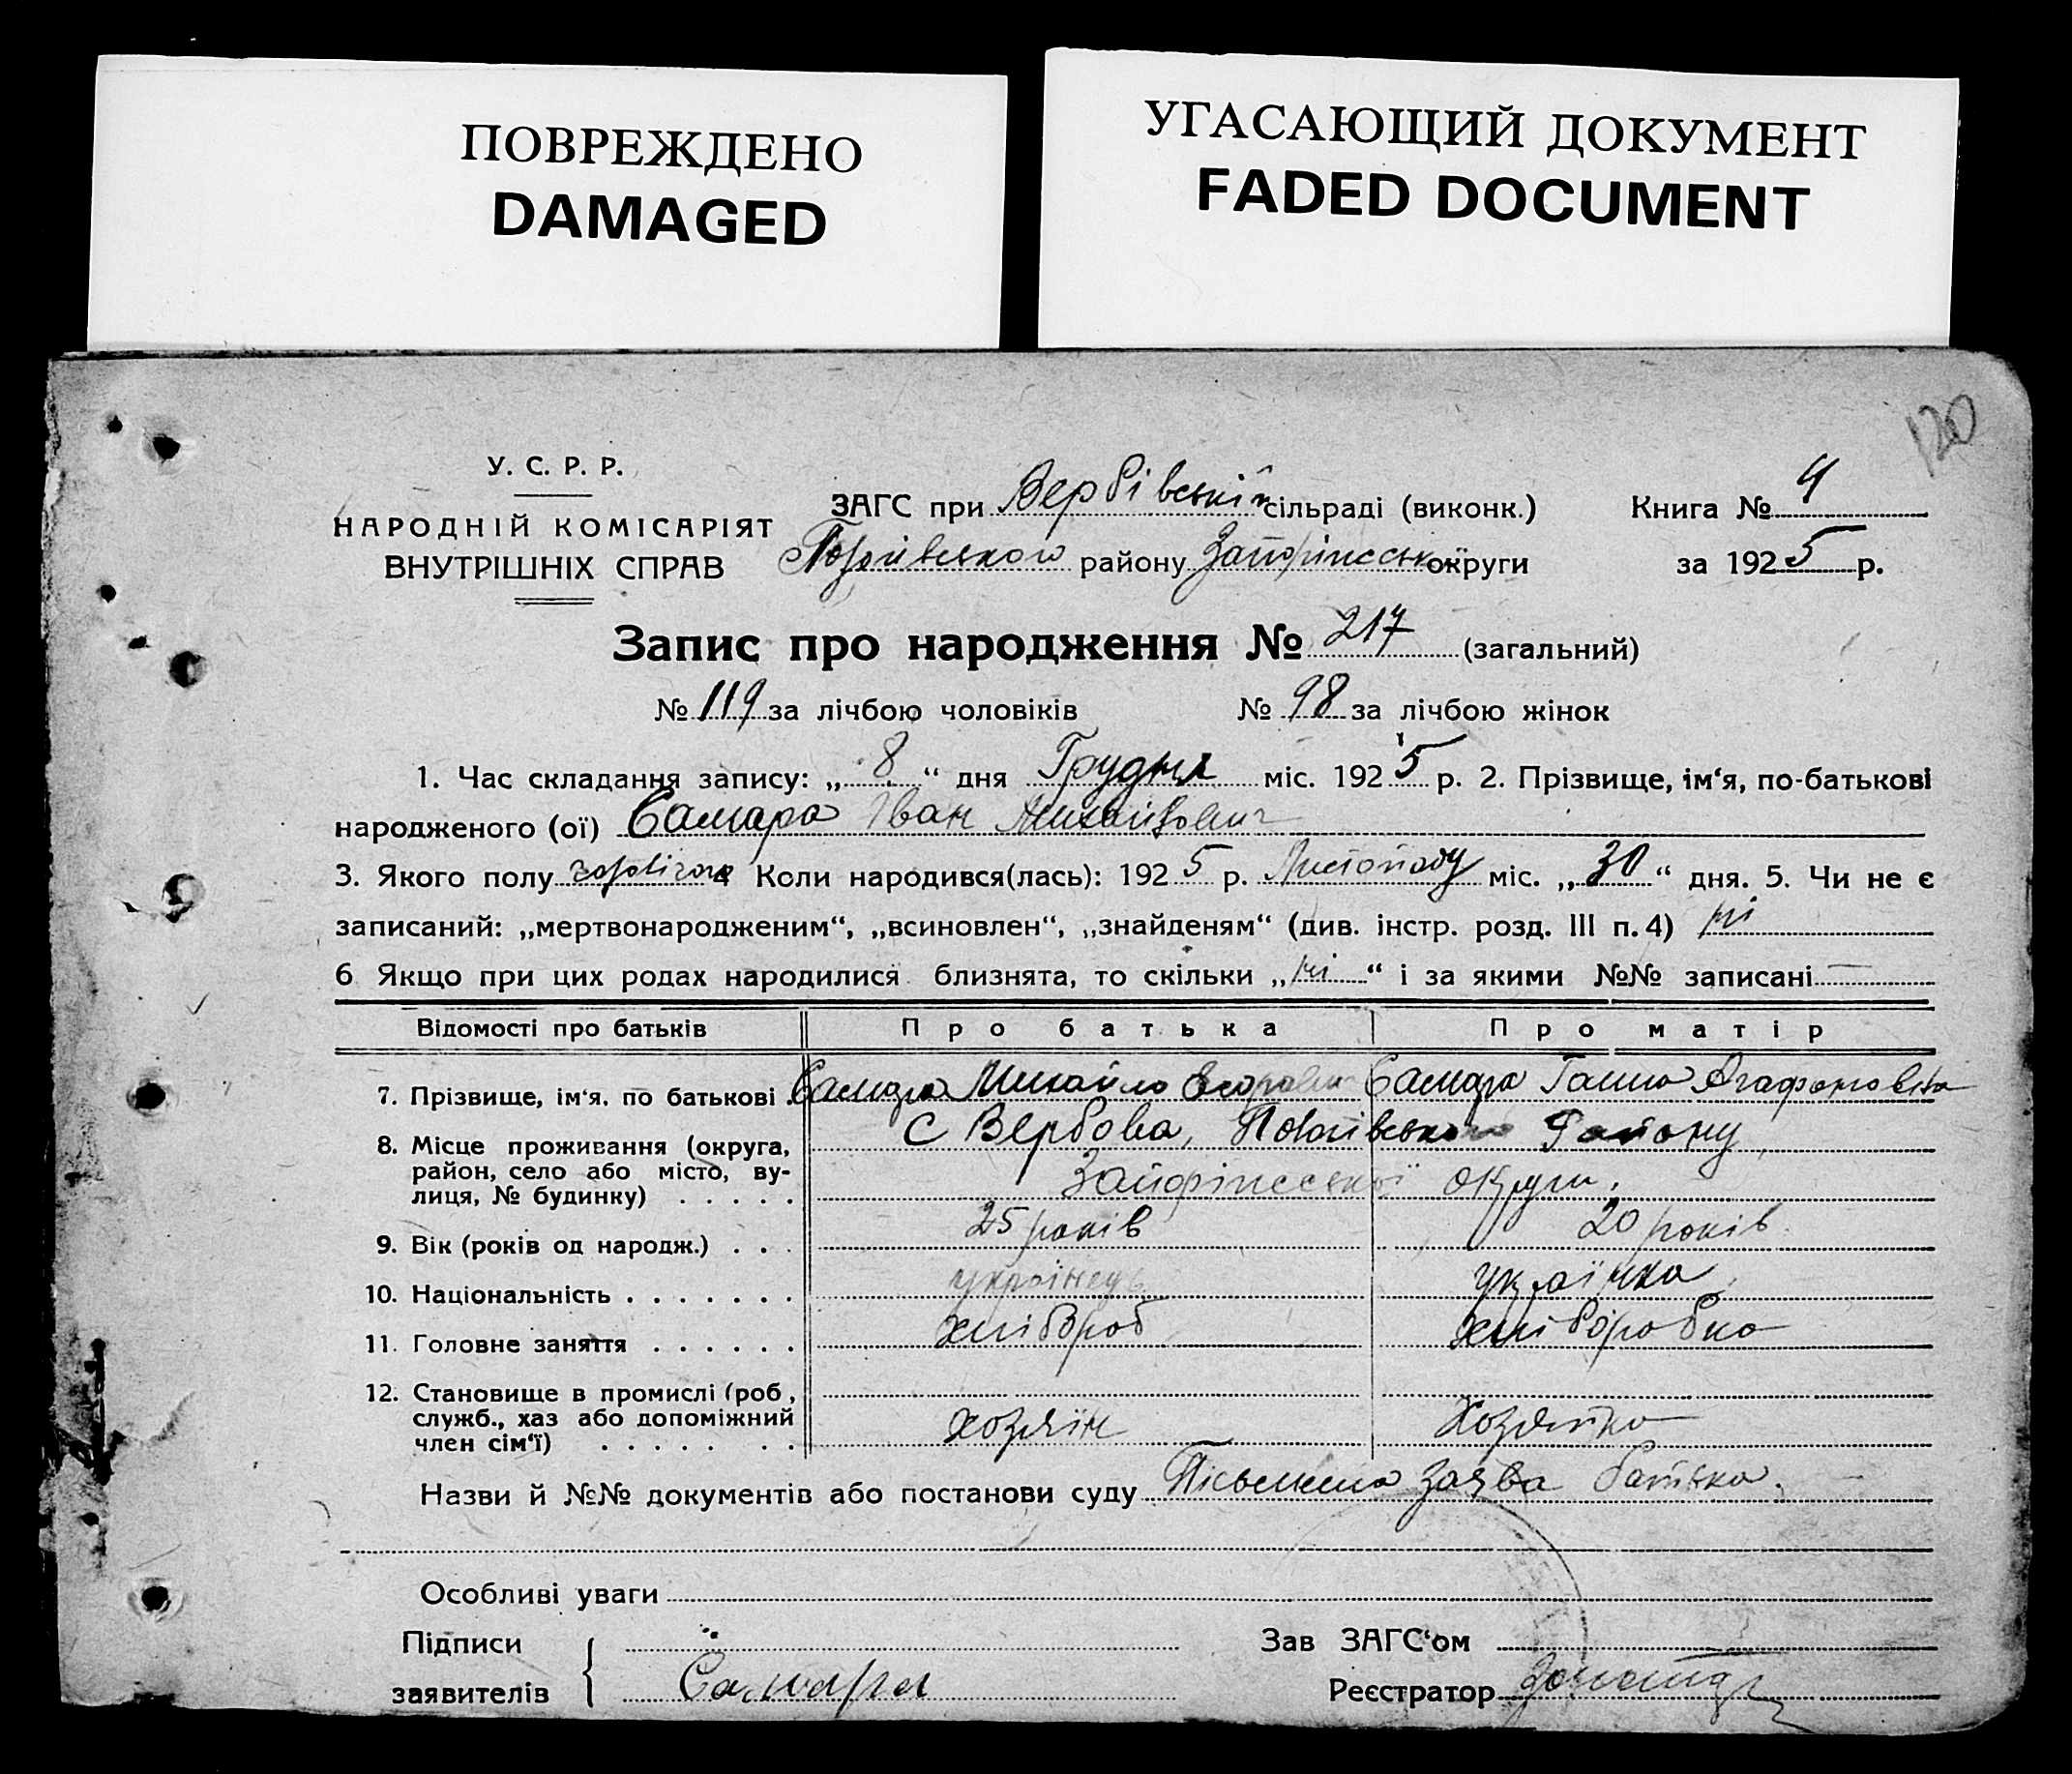 ПОВРЕЖДЕНО
DAMAGED
УГАСАЮЩИЙ ДОКУМЕНТ
FADED DOCUMENT
120
У. С. Р. Р.
НАРОДНІЙ КОМІСАРІЯТ
ВНУТРІШНІХ СПРАВ
ЗАГС при Вербівській сільраді (виконк.)
району Запоріжської округи
Книга № 4
за 1925 р.
Запис про народження № 217 (загальний)
№ 119 за лічбою чоловіків № 98 за лічбою жінок
1. Час складання запису: „ 8 “ дня Грудня міс. 1925 р. 2. Прізвище, ім‘я, по-батькові
народженого (ої) Самара Іван Михайлович
3. Якого полу чоловічого 4 Коли народився(лась): 1925 р. Листопаду міс. „ 30 “ дня. 5. Чи не є
записаний: „мертвонародженим“, „всиновлен“, „знайденям“ (див. інстр. розд. III п. 4) ні
6 Якщо при цих родах народилися близнята, то скільки „ ні “ і за якими №№ записані —
Відомості про батьків Про батька Про матір
7. Прізвище, ім‘я, по батькові Самара Михайло Егорович Самара Ганна Агафоновна
8. Місце проживання (округа, с Вербова, Району
район, село або місто, ву- Запоріжської округи.
лиця, № будинку)
9. Вік (років од народж.) 25 років 20 років
10. Національність українець українка
11. Головне заняття хлібороб хліборобка
12. Становище в промислі (роб,
служб., хаз або допоміжний хозяїн хозяйка
член сім‘ї)
Назви й №№ документів або постанови суду Пісьмена заява батька.
Особливі уваги
Підписи
заявителів Самара
Зав ЗАГС‘ом
Реєстратор